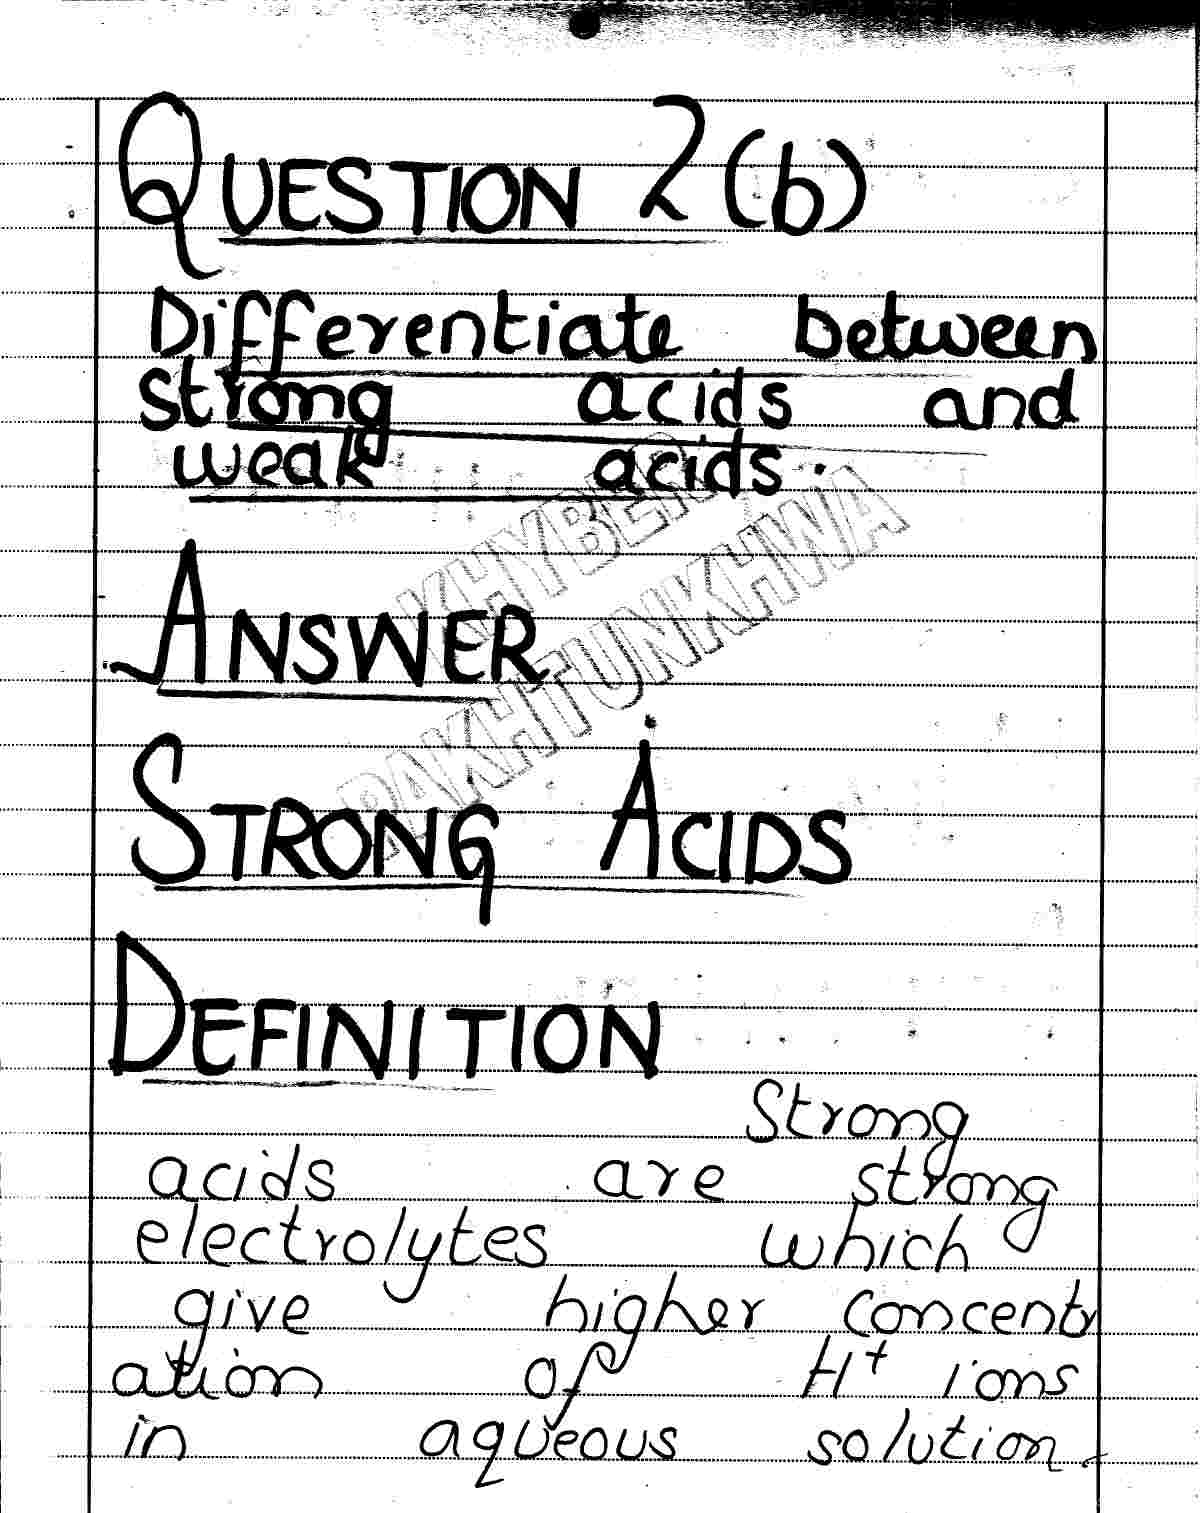 QUESTION 2 (b)
Differentiate between
strong acids and
weak acids.
KHYBER
PAKHTUNKHWA
ANSWER
STRONG ACIDS
DEFINITION
Strong
acids are strong
electrolytes which
give higher concentr
ation of H⁺ ions
in aqueous solution.